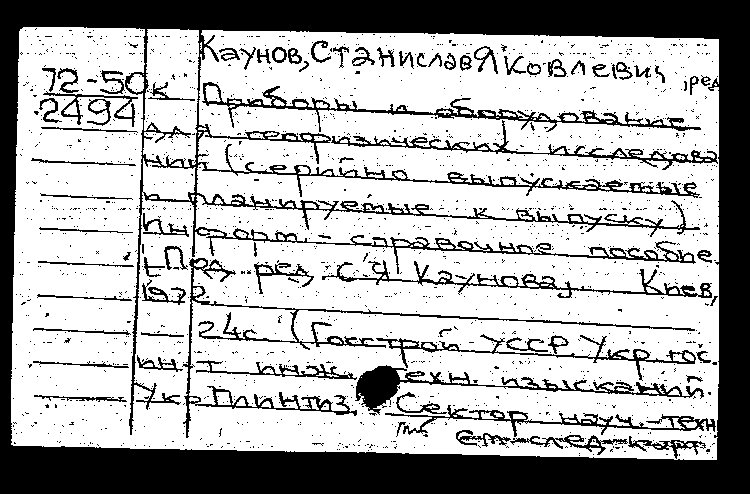 Каунов, Станислав Яковлевич, ред
72-50к Приборы и оборудование
2494
для геофизических исследова
ний (серийно выпускаемые
и планируемые к выпуску)
Информ.-справочное пособие.
[Под ред. С.Я. Каунова]. Киев,
1972.
24с. (Госстрой УССР. Укр. гос.
ин-т инж. техн. изысканий.
УкрГИИНТИЗ. Сектор науч.-техн
см след карт.